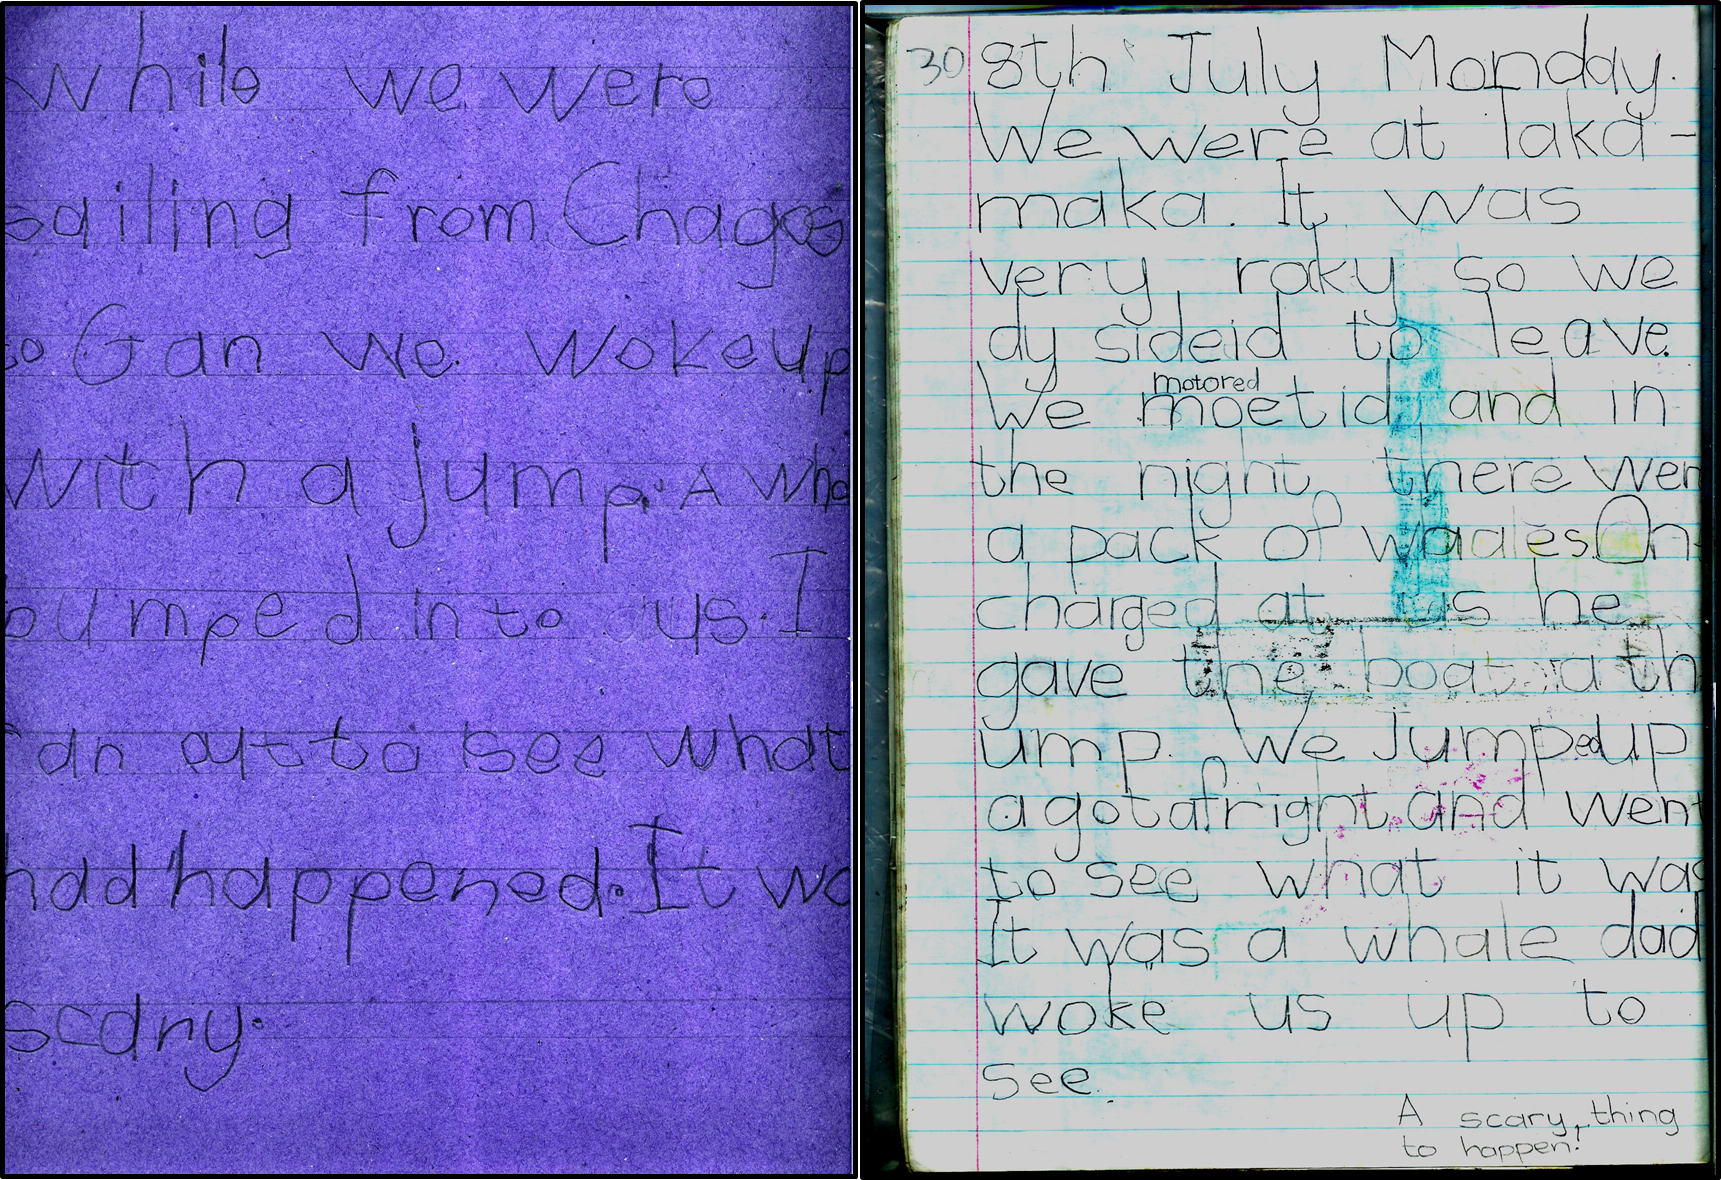 while we were
sailing from Chagos
to Gan we wokeup
with a jump. A wha
bumped into us. I
ran outto see what
had happened. It wa
scary.
30 8th July Monday.
We were at Taka-
maka. It was
very roky so we
dy sideid to leave.
We moetid and in
motored
the night there wer
a pack of waales On
charged at us he
gave the boat a th
ump. We Jumpedup
agotafright and went
to see what it was
It was a whale dad
woke us up to
see.
A scary thing
to happen!